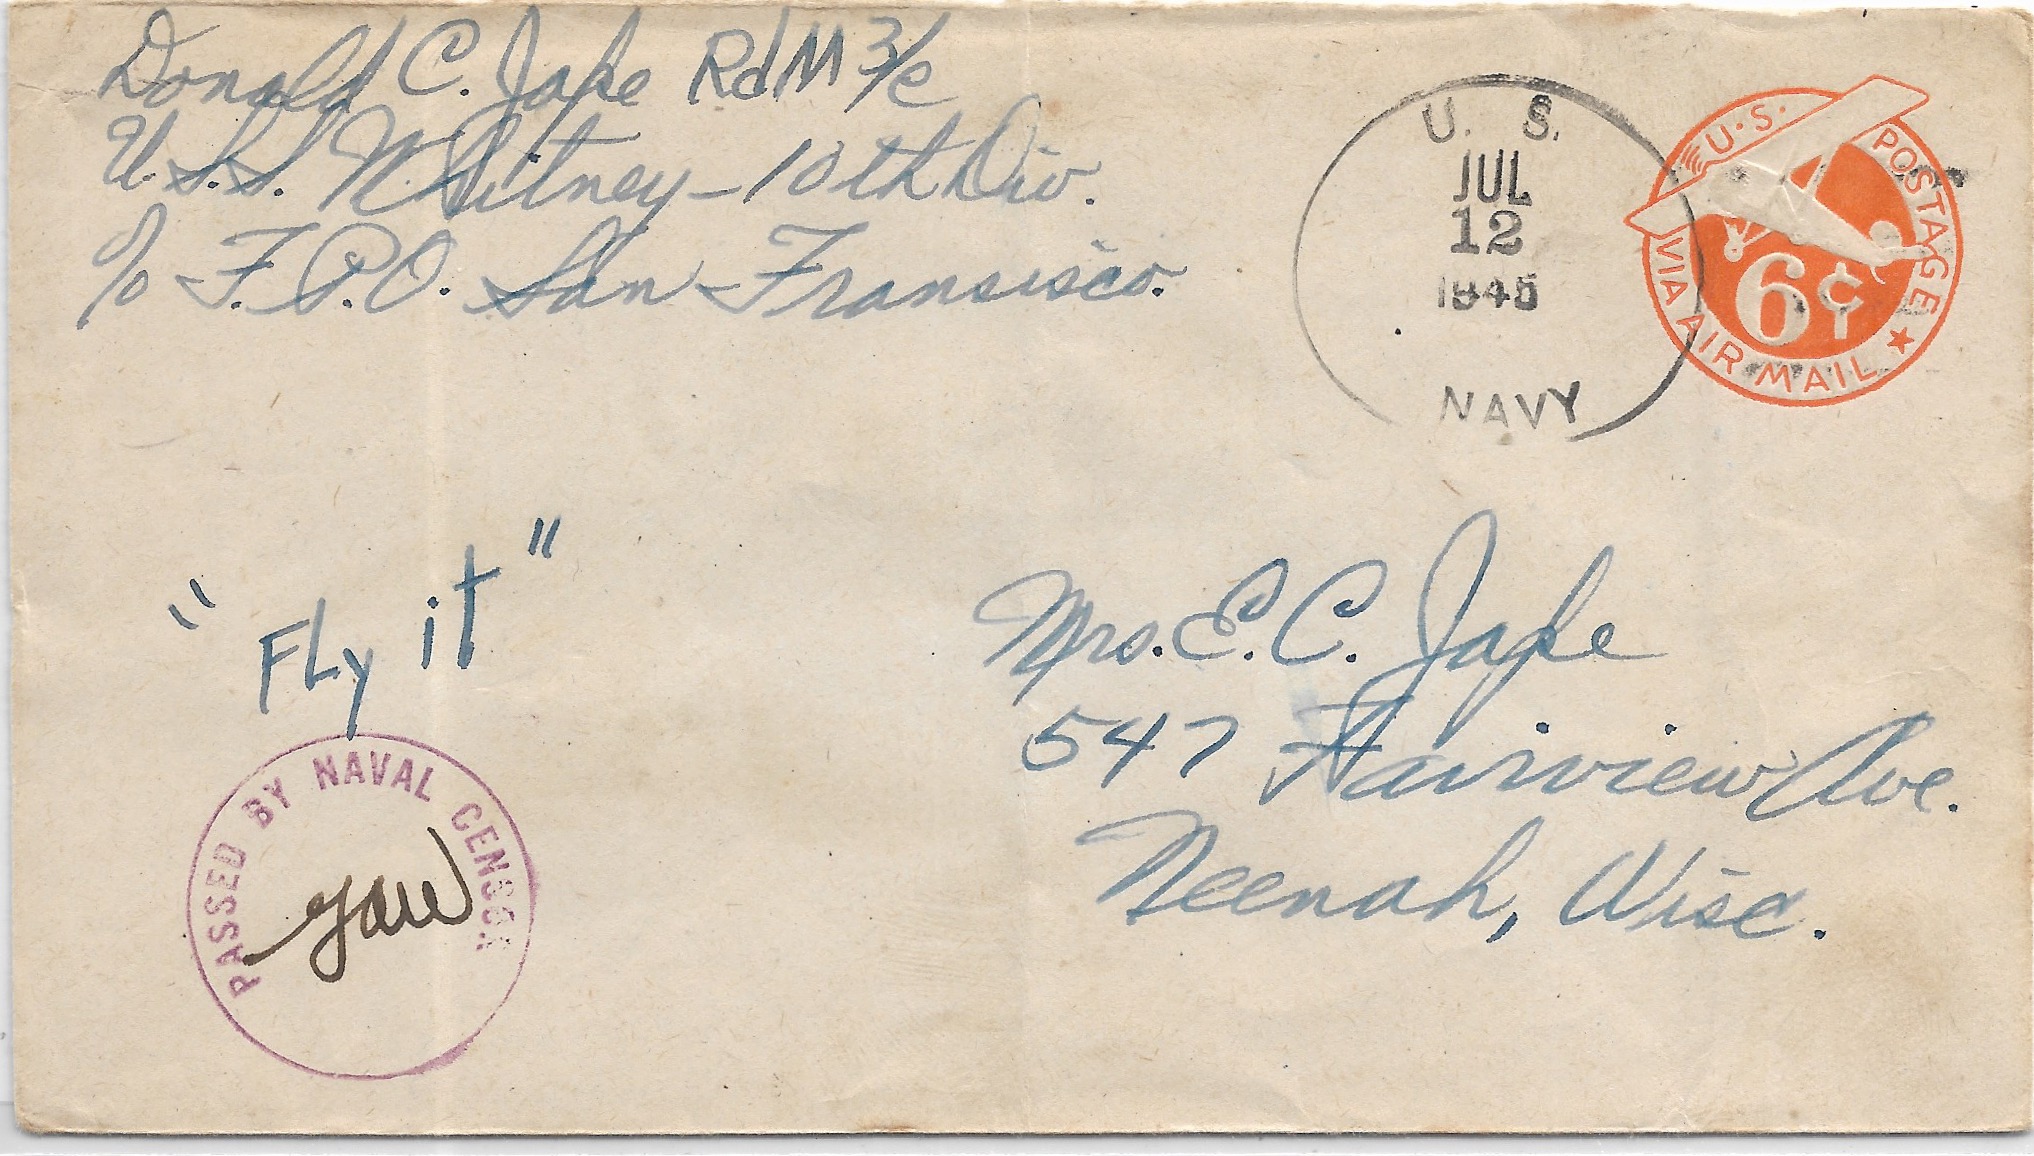 Donald C. Jape RdM 3/c
U.S.S. Whitney - 10th Div.
c/o F.P.O. San Fransisco.
U. S.
JUL
12
1945
NAVY
U.S. POSTAGE
6¢
VIA AIR MAIL
"FLy it"
Mrs. E. C. Jape
547 Fairview Ave.
Neenah, Wisc.
PASSED BY NAVAL CENSOR